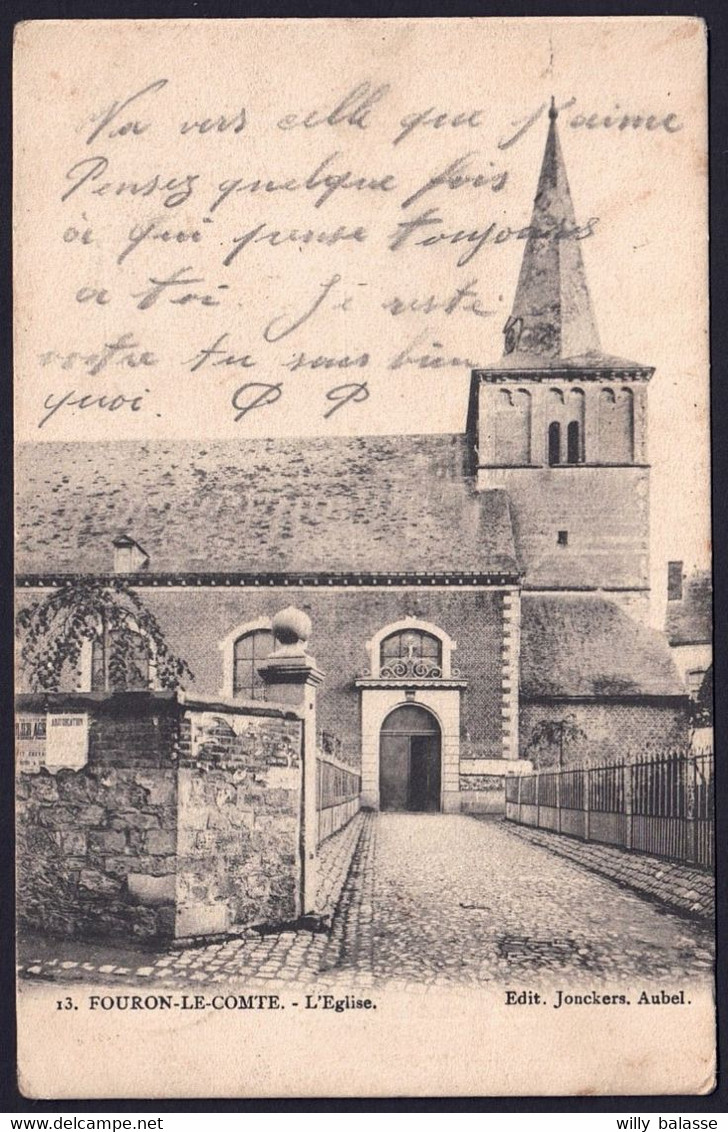 Va vers celle que j'aime
Pensez quelque fois
à qui pense toujours
a toi. Je reste
votre tu sais bien
quoi. P P
ABDICATION
13. FOURON-LE-COMTE. - L'Eglise.
Edit. Jonckers. Aubel.
willy balasse